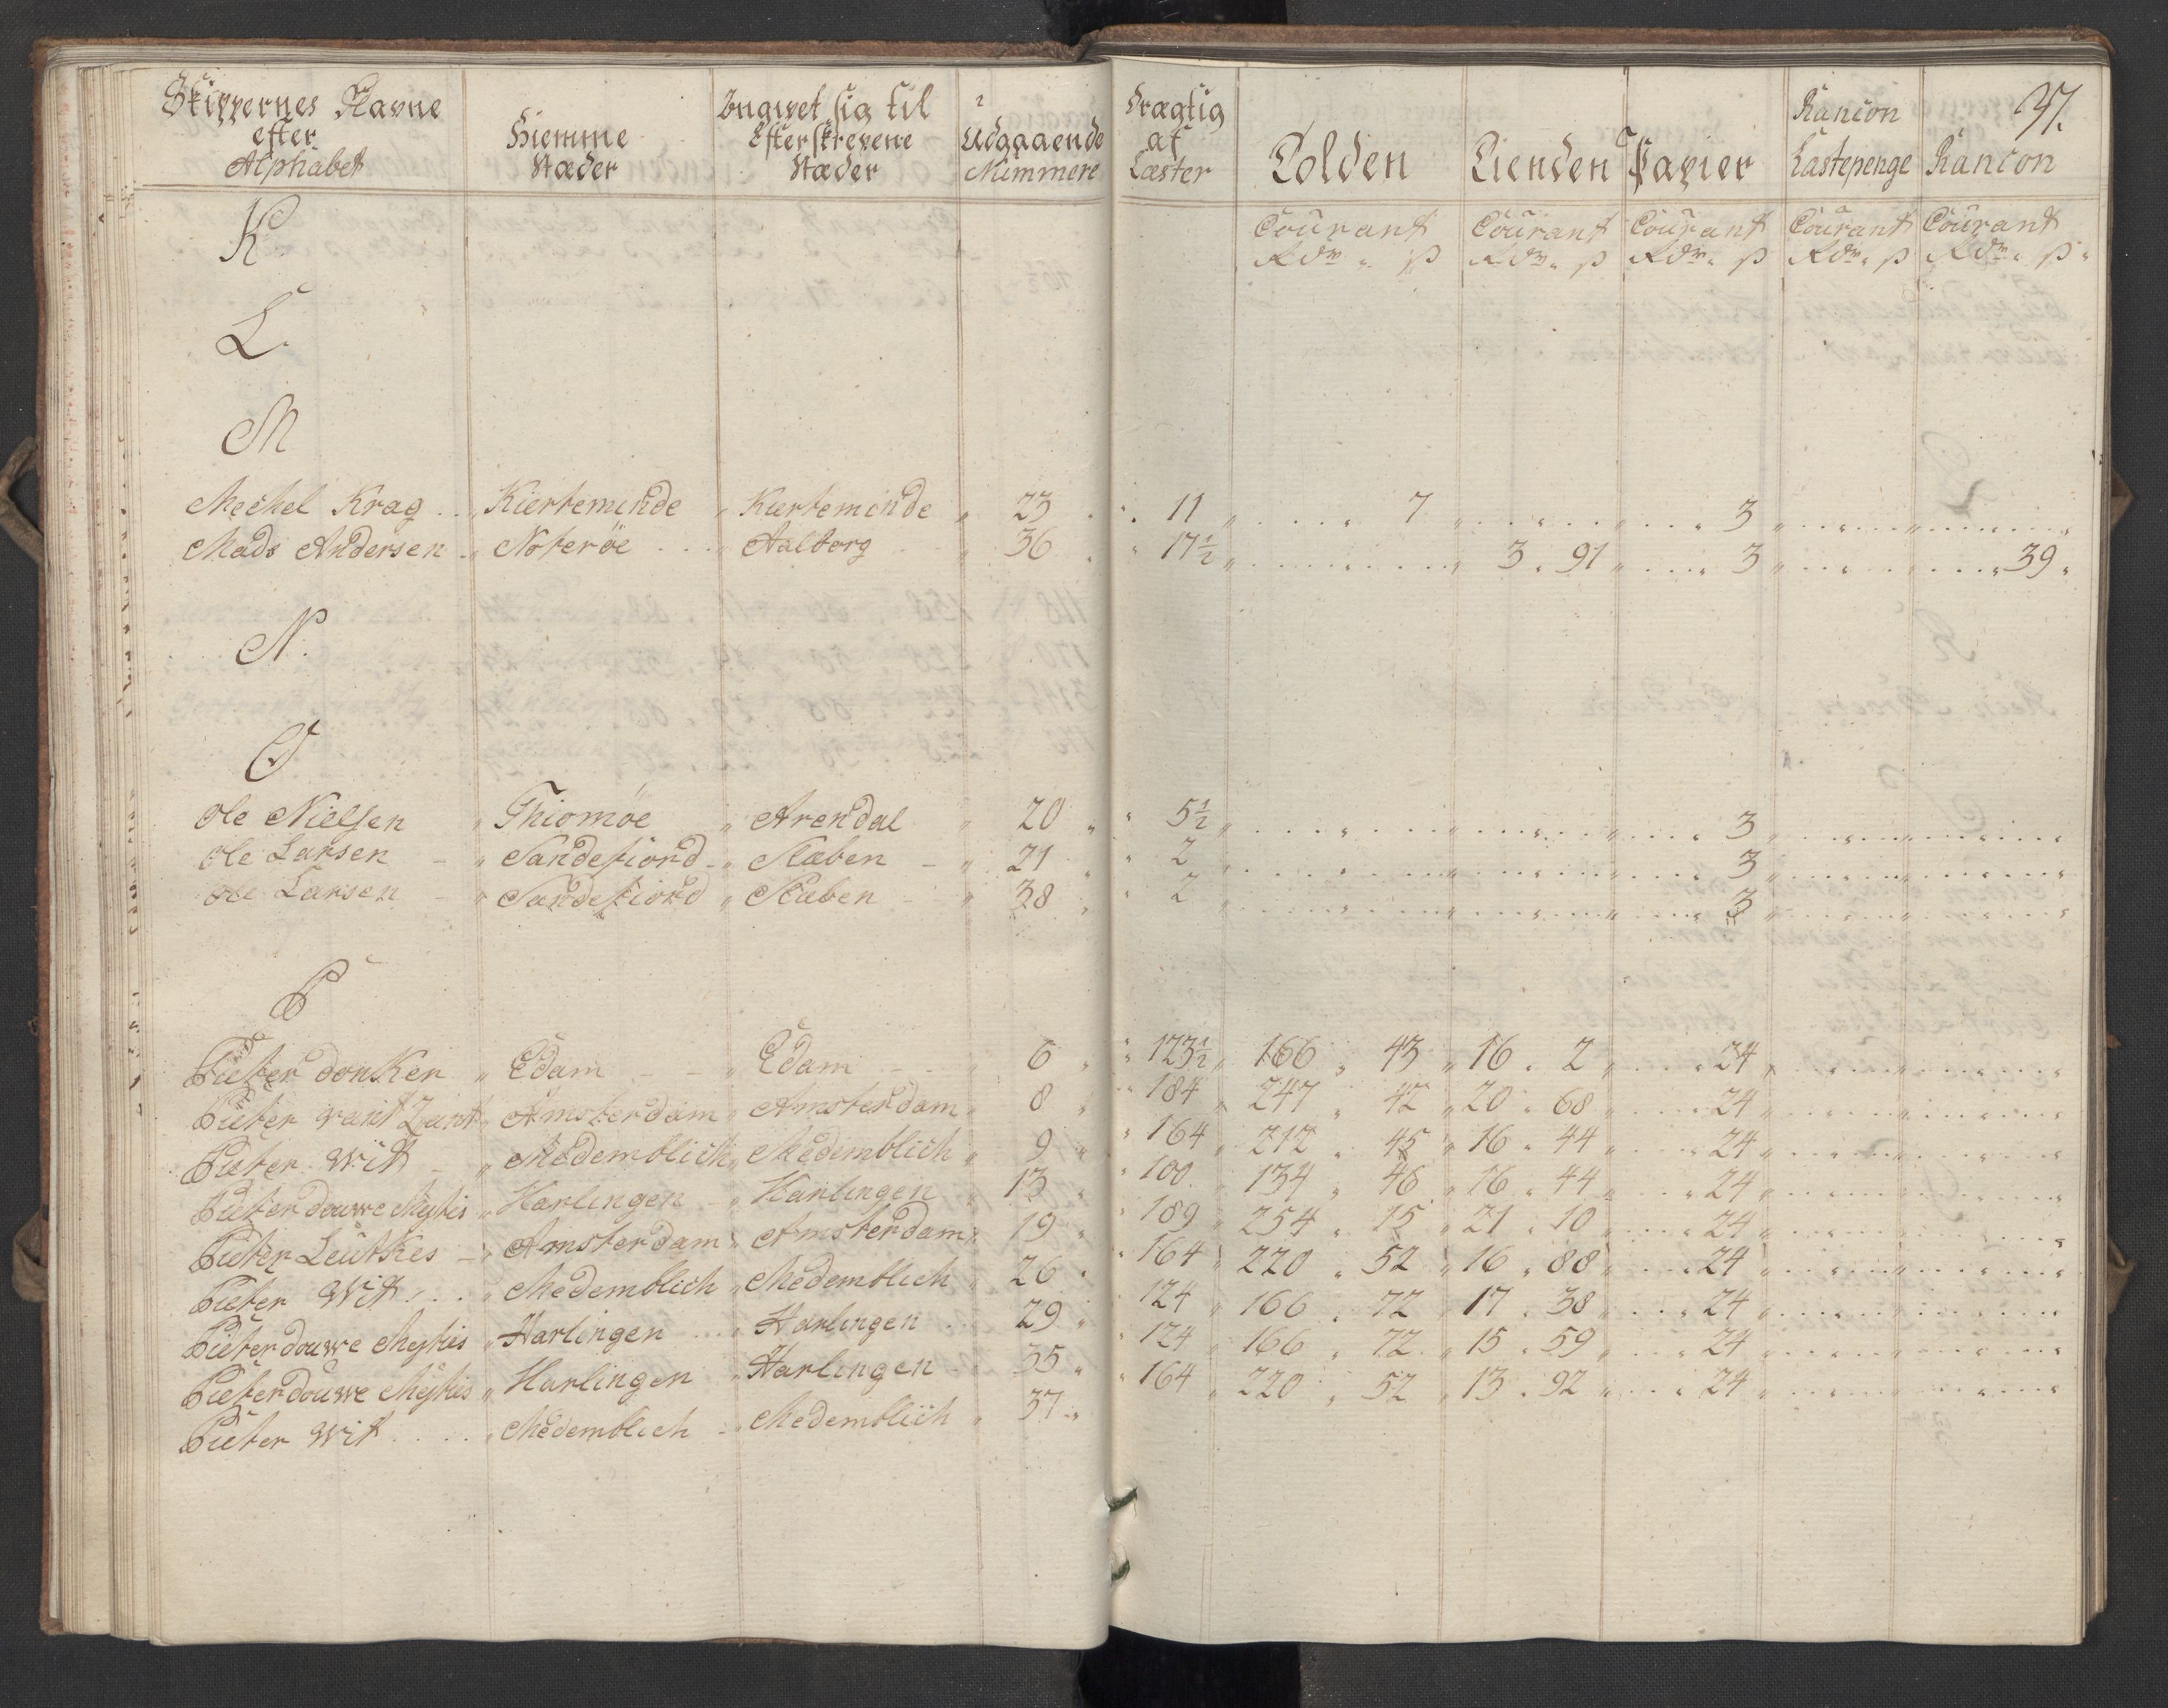 Skippernes Navne efter Alphabet | Hiemme Stæder | Angivet sig til Efterskrevene Stæder | Udgaaende Nummere | Drægtig af Læster | Tolden | Tienden | Papier | Rancon Lastepenge | Rancon | 37.
Courant Rdr. ß | Courant Rdr. ß | Courant Rdr. ß | Courant Rdr. ß | Courant Rdr. ß
K
L.
M
Mechel Krag | Kierteminde | Kierteminde | 23 | 11 | 7 | 3
Mads Andersen | Noterøe | Aalborg | 36 | 17½ | 3. 91 | 3 | 39
N.
O
Ole Nielsen | Thiomöe | Arendal | 20 | 5½ | 3
Ole Larsen | Sandefiord | Staben | 21 | 2 | 3
Ole Larsen | Sandefiord | Staben | 38 | 2 | 3
P
Pieter donKer | Edam | Edam | 6 | 123½ | 166. 43 | 16. 2 | 24
Pieter vant Zant | Amsterdam | Amsterdam | 8 | 184 | 247. 42 | 20. 68 | 24
Pieter Wit | Medemblich | Medemblich | 9 | 164 | 212. 45 | 16. 44 | 24
Pieter douwe Mejties | Harlingen | Harlingen | 13 | 100 | 134. 46 | 16. 44 | 24
Pieter LeütKes | Amsterdam | Amsterdam | 19 | 189 | 254. 15 | 21. 10 | 24
Pieter Wit | Medemblich | Medemblich | 26 | 164 | 220. 52 | 16. 88 | 24
Pieter douwe Mejties | Harlingen | Harlingen | 29 | 124 | 166. 72 | 17. 38 | 24
Pieter douwe Mejties | Harlingen | Harlingen | 35 | 124 | 166. 72 | 15. 59 | 24
Pieter Wit | Medemblich | Medemblich | 37 | 164 | 220. 52 | 13. 92 | 24